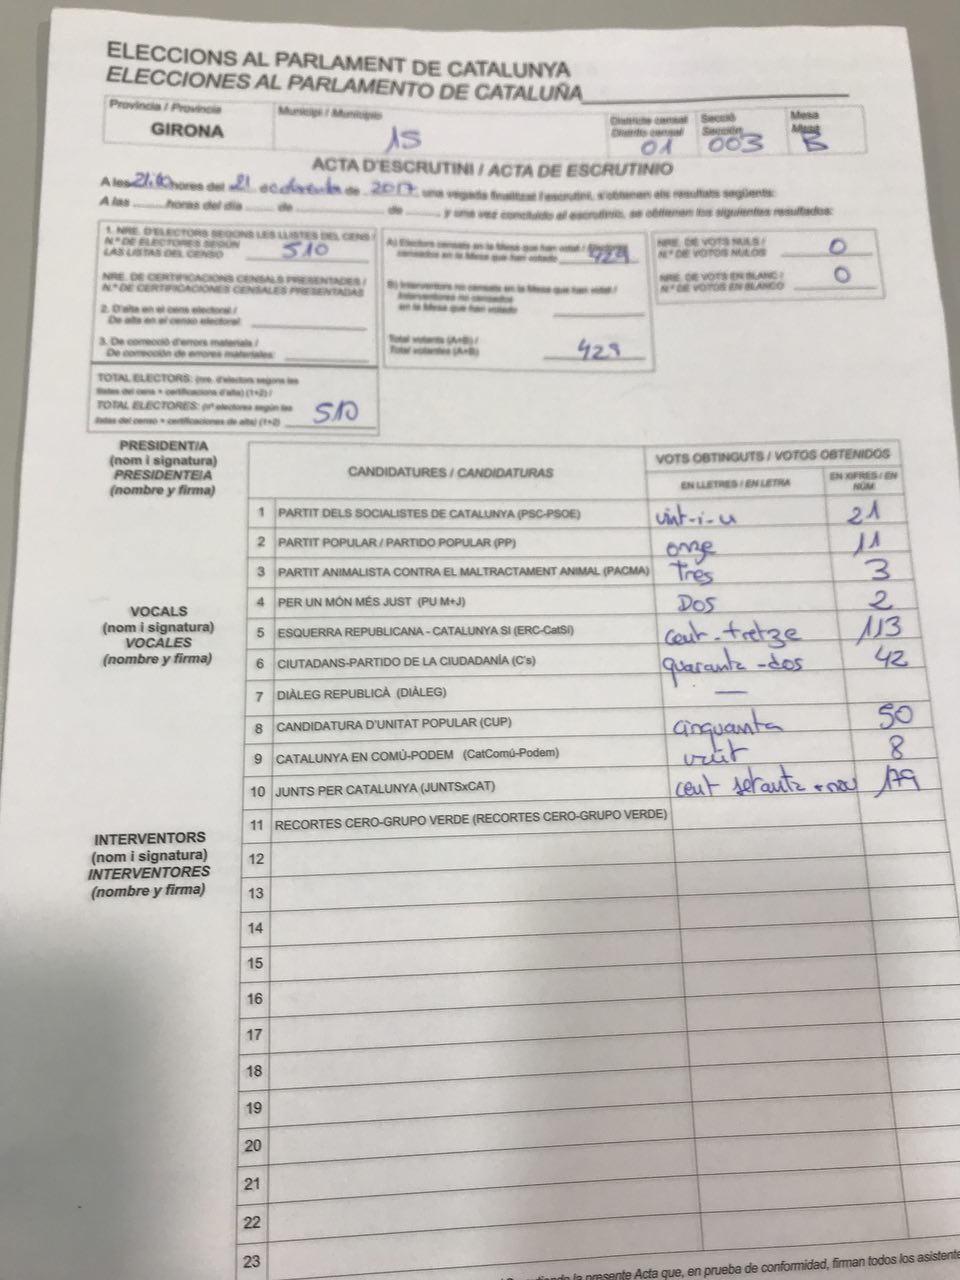 ELECCIONS AL PARLAMENT DE CATALUNYA
ELECCIONES AL PARLAMENTO DE CATALUÑA
Província / Provincia
GIRONA
Municipi / Municipio
15
Districte censal
Distrito censal
01
Secció
Sección
003
Mesa
Mesa
B
ACTA D'ESCRUTINI / ACTA DE ESCRUTINIO
A les hores del 21 de de 2017 una vegada finalitzat l'escrutini, s'obtenen els resultats següents:
A las ........ horas del día ........ de ........ de ........ y una vez concluido el escrutinio, se obtienen los siguientes resultados:
1. NRE. D'ELECTORS SEGONS LES LLISTES DEL CENS /
N.º DE ELECTORES SEGÚN
LAS LISTAS DEL CENSO 510
NRE. DE CERTIFICACIONS CENSALS PRESENTADES /
N.º DE CERTIFICACIONES CENSALES PRESENTADAS
2. D'alta en el cens electoral /
De alta en el censo electoral:
3. De correcció d'errors materials /
De corrección de errores materiales:
TOTAL ELECTORS: (nre. d'electors segons les
llistes del cens + certificacions d'alta) (1+2) /
TOTAL ELECTORES: (nº electores según las
listas del censo + certificaciones de alta) (1+2) 510
A) Electors censats en la Mesa que han votat / Electores
censados en la Mesa que han votado 429
B) Interventors no censats en la Mesa que han votat /
Interventores no censados
en la Mesa que han votado
Total votants (A+B) /
Total votantes (A+B) 429
NRE. DE VOTS NULS /
N.º DE VOTOS NULOS 0
NRE. DE VOTS EN BLANC /
N.º DE VOTOS EN BLANCO 0
PRESIDENT/A
(nom i signatura)
PRESIDENTE/A
(nombre y firma)
VOCALS
(nom i signatura)
VOCALES
(nombre y firma)
INTERVENTORS
(nom i signatura)
INTERVENTORES
(nombre y firma)
CANDIDATURES / CANDIDATURAS
VOTS OBTINGUTS / VOTOS OBTENIDOS
EN LLETRES / EN LETRA
EN XIFRES / EN
NÚM.
1 PARTIT DELS SOCIALISTES DE CATALUNYA (PSC-PSOE) vint-i-u 21
2 PARTIT POPULAR / PARTIDO POPULAR (PP) onze 11
3 PARTIT ANIMALISTA CONTRA EL MALTRACTAMENT ANIMAL (PACMA) Tres 3
4 PER UN MÓN MÉS JUST (PU M+J) Dos 2
5 ESQUERRA REPUBLICANA - CATALUNYA SI (ERC-CatSí) cent-tretze 113
6 CIUTADANS-PARTIDO DE LA CIUDADANÍA (C's) quaranta-dos 42
7 DIÀLEG REPUBLICÀ (DIÀLEG) —
8 CANDIDATURA D'UNITAT POPULAR (CUP) cinquanta 50
9 CATALUNYA EN COMÚ-PODEM (CatComú-Podem) vuit 8
10 JUNTS PER CATALUNYA (JUNTSxCAT) cent setanta-nou 179
11 RECORTES CERO-GRUPO VERDE (RECORTES CERO-GRUPO VERDE)
12
13
14
15
16
17
18
19
20
21
22
23
la presente Acta que, en prueba de conformidad, firman todos los